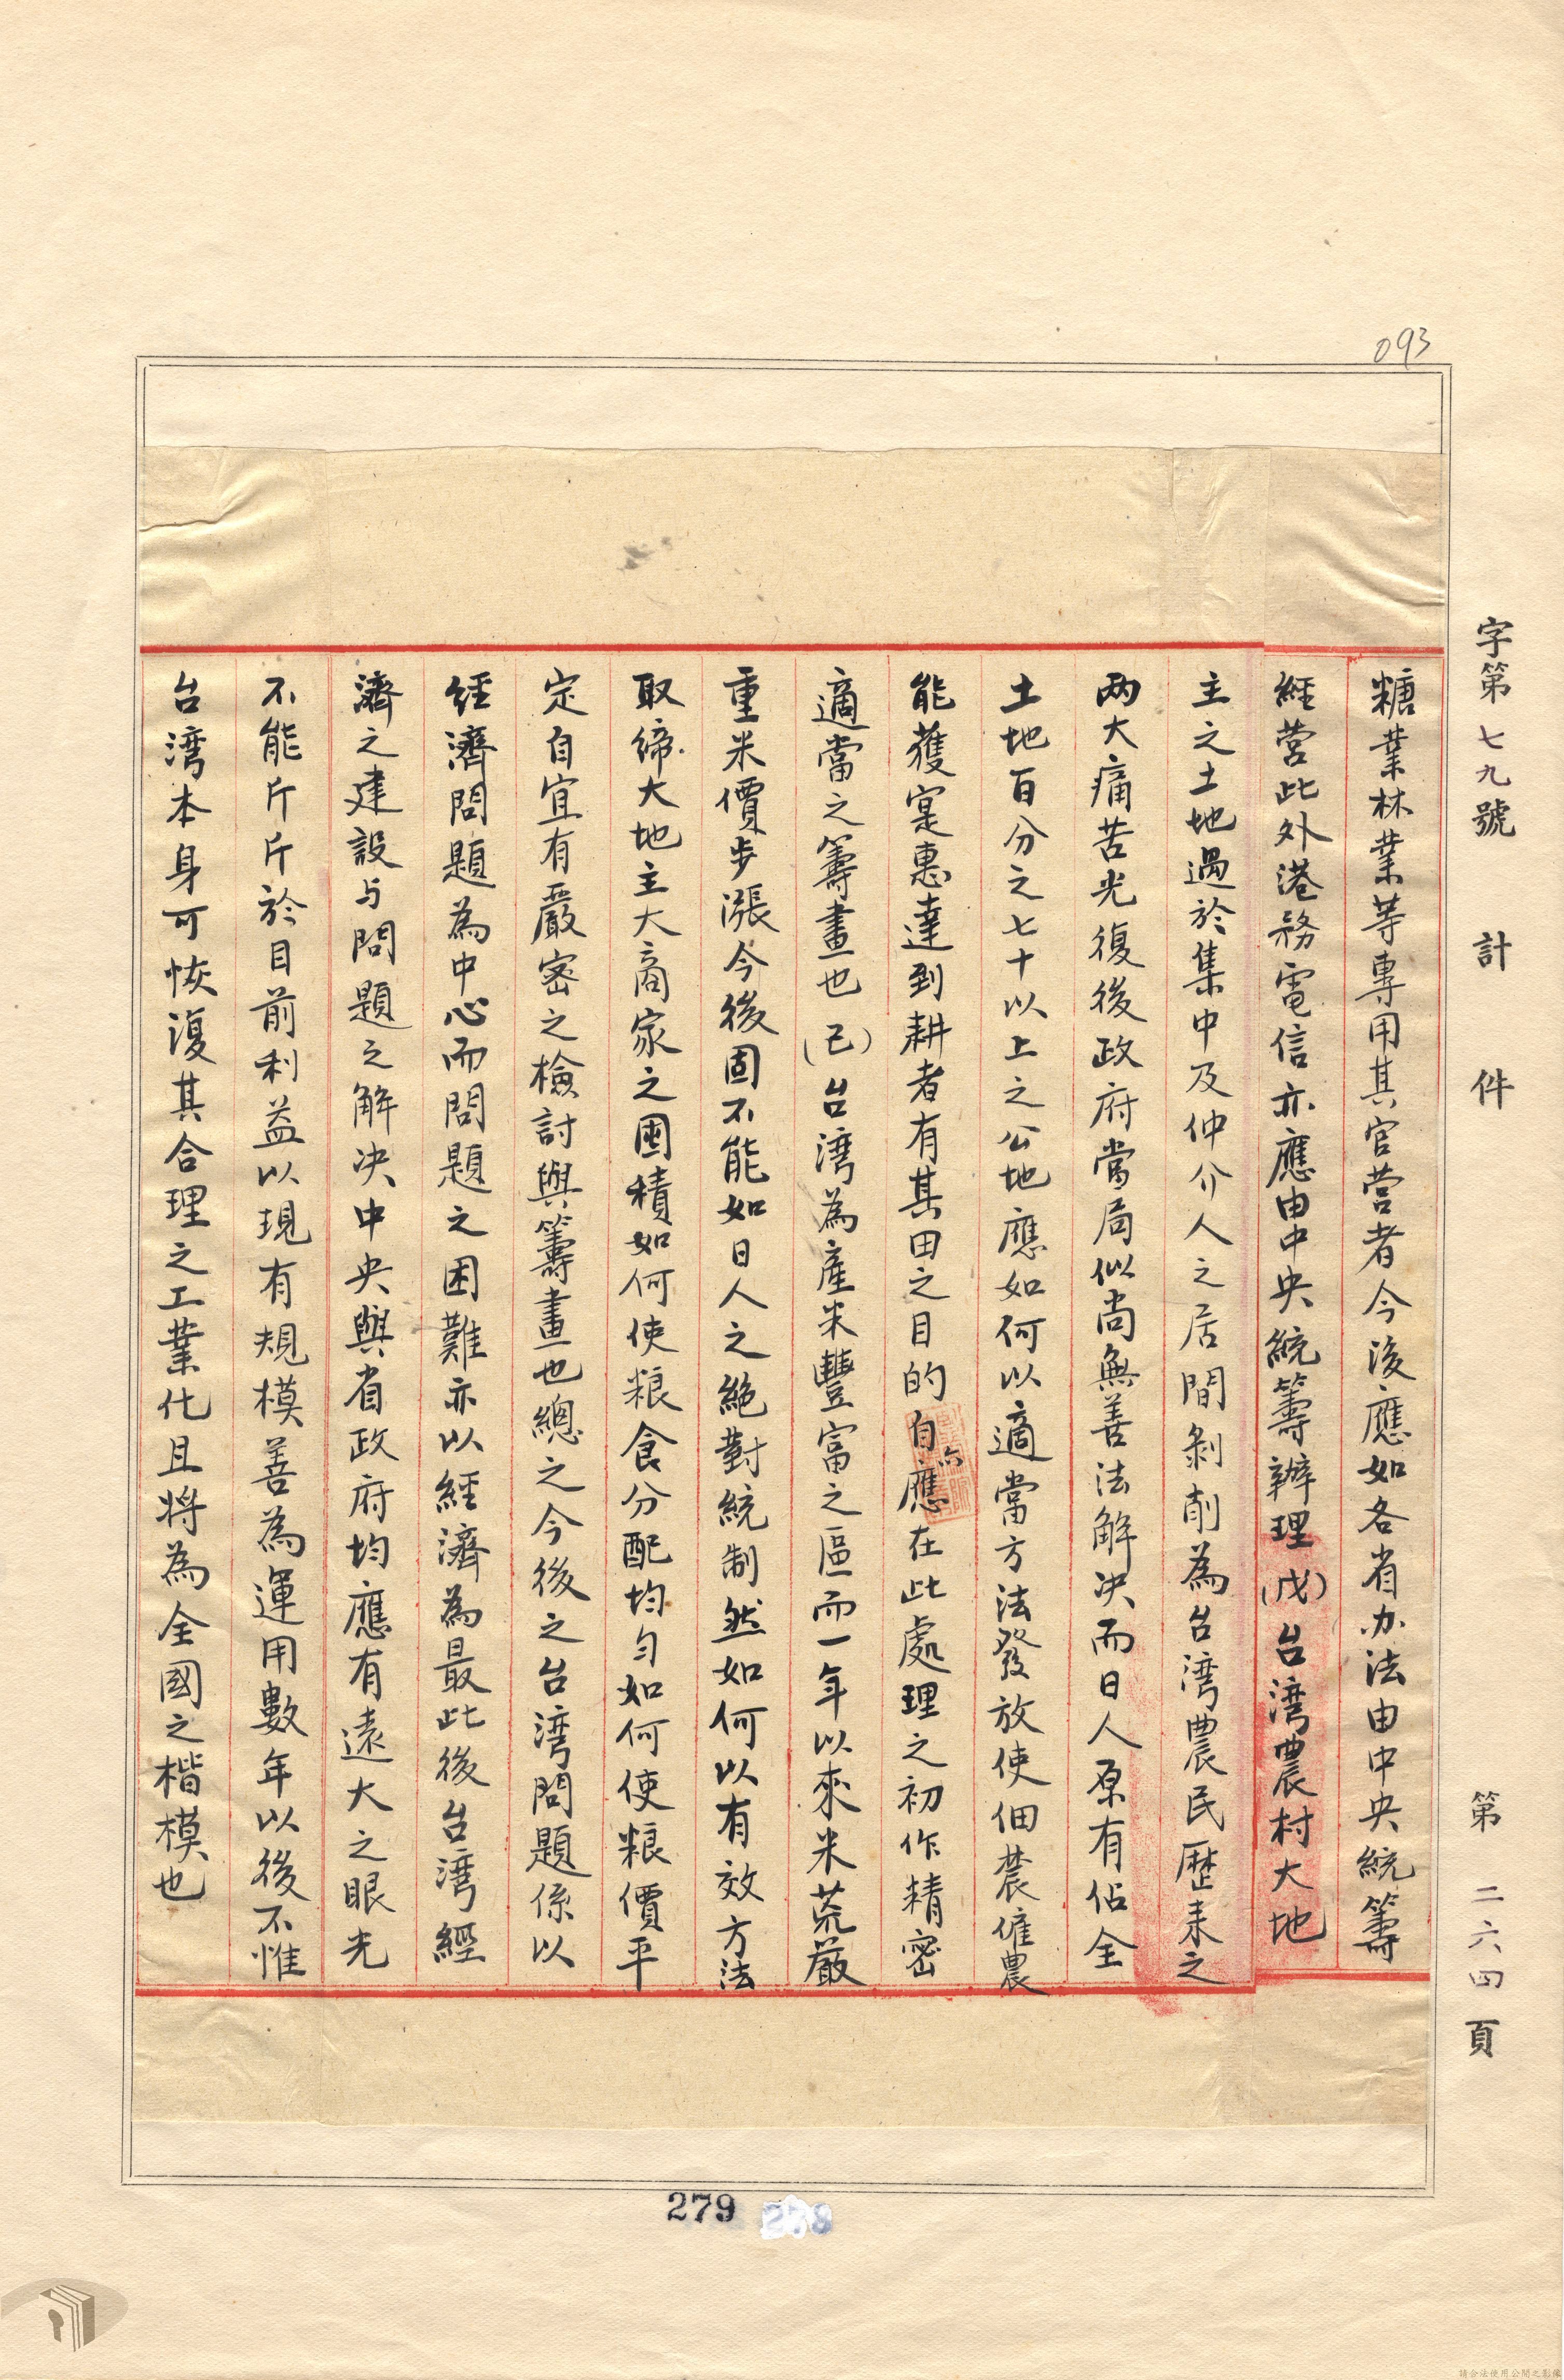 093
字第七九號 計 件 第二六四頁
糖業林業等專用其官营者今後應如各省办法由中央統籌
經营此外港務電信亦應由中央統籌辦理(戊)台湾農村大地
主之土地過於集中及仲介人之居間剝削為台湾農民歷来之
兩大痛苦光復後政府當局似尚無善法解决而日人原有佔全
土地百分之七十以上之公地應如何以適當方法發放使佃農僱農
能獲寔惠達到耕者有其田之目的自應在此處理之初作精密
適當之籌畫也(己)台湾為產米豐富之區而一年以來米荒嚴
重米價步漲今後固不能如日人之絶對統制然如何以有效方法
取締大地主大商家之囤積如何使粮食分配均匀如何使粮價平
定自宜有嚴密之檢討與籌畫也總之今後之台湾問題係以
經濟問題為中心而問題之困難亦以經濟為最此後台湾經
濟之建設与問題之解决中央與省政府均應有遠大之眼光
不能斤斤於目前利益以現有規模善為運用數年以後不惟
台湾本身可恢復其合理之工業化且將為全國之楷模也
279
請合法使用公開之影像